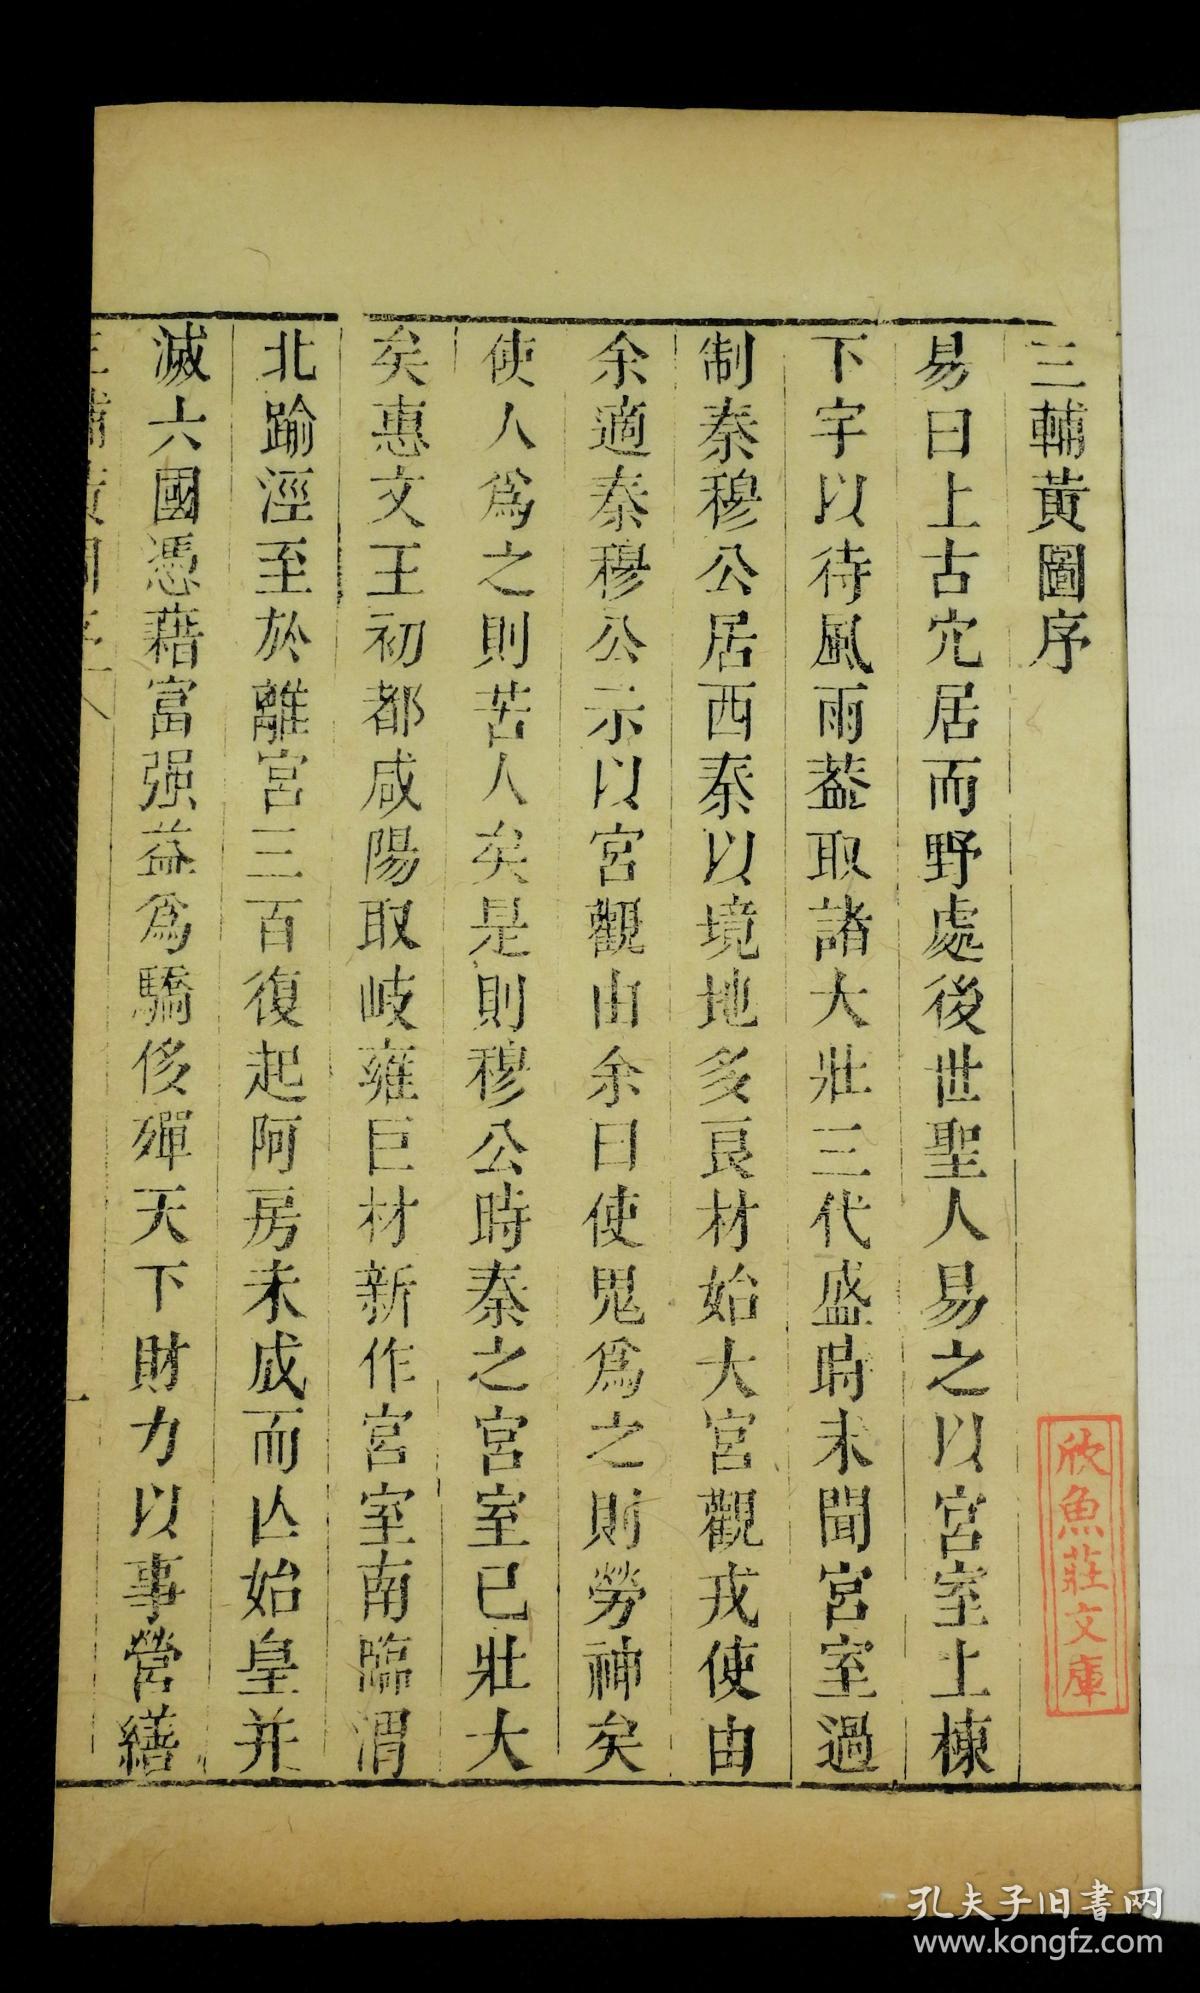 三輔黃圖序
易曰上古穴居而野處後世聖人易之以宮室上棟
下宇以待風雨葢取諸大壯三代盛時未聞宮室過
制秦穆公居西秦以境地多良材始大宮觀戎使由
余適秦穆公示以宮觀由余曰使鬼爲之則勞神矣
使人爲之則苦人矣是則穆公時秦之宮室已壯大
矣惠文王初都咸陽取岐雍巨材新作宮室南臨渭
北踰涇至於離宮三百復起阿房未成而亾始皇并
滅六國憑藉富强益爲驕侈殫天下財力以事營繕
欣魚莊文庫
孔夫子旧书网
www.kongfz.com